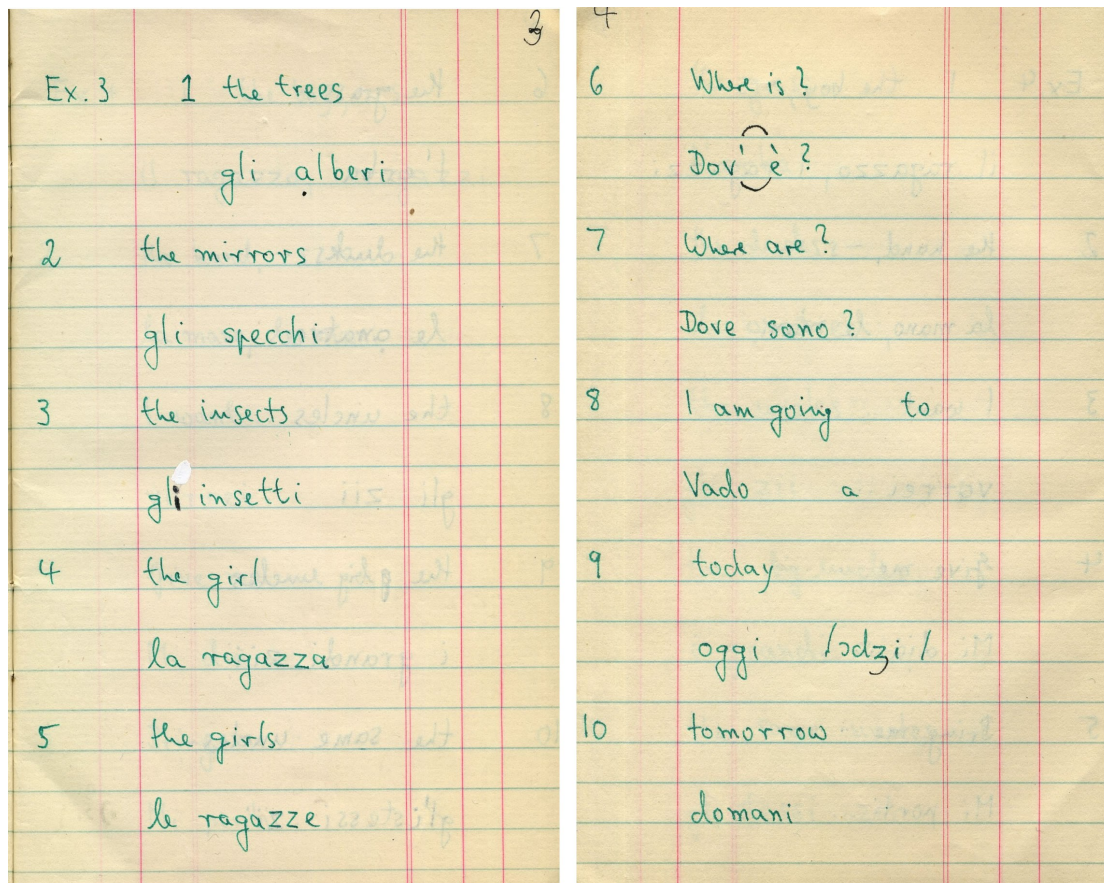 3
Ex. 3 1 the trees
gli alberi
2 the mirrors
gli specchi
3 the insects
gli insetti
4 the girl
la ragazza
5 the girls
le ragazze
4
6 Where is?
Dov'è?
7 Where are?
Dove sono?
8 I am going to
Vado a
9 today
oggi /ɔdʒi/
10 tomorrow
domani